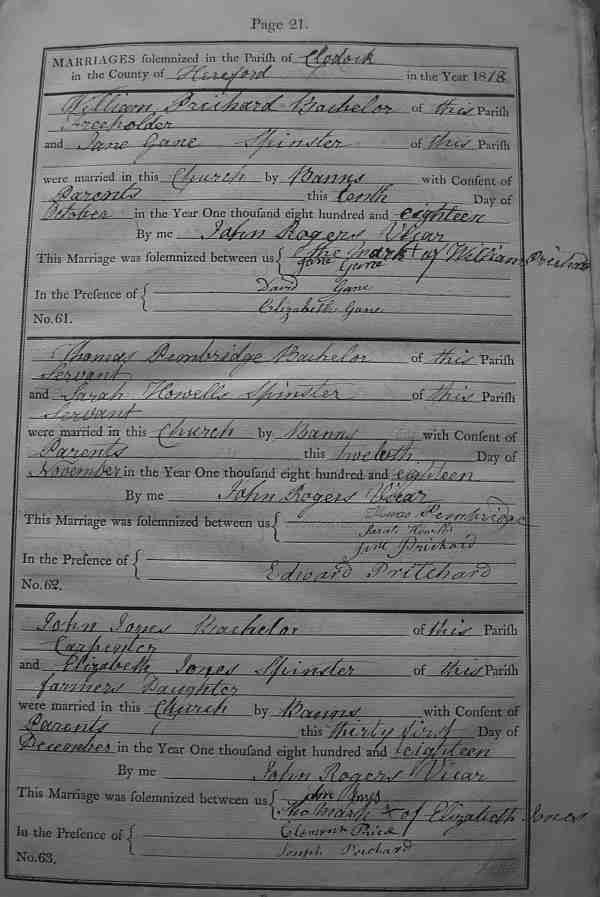 Page 21.
MARRIAGES solemnized in the Parish of Clodock
in the County of Hereford in the Year 1818
William Prichard Bachelor of this Parish
Freeholder
and Jane Gane Spinster of this Parish
were married in this Church by Banns with Consent of
Parents this tenth Day of
October in the Year One thousand eight hundred and eighteen
By me John Rogers Vicar
This Marriage was solemnized between us { the mark + of William Prichard
Jane Gane
In the Presence of { David Gane
Elizabeth Gane
No. 61.
Thomas Pembridge Bachelor of this Parish
Servant
and Sarah Howells Spinster of this Parish
Servant
were married in this Church by Banns with Consent of
Parents this twelvth Day of
November in the Year One thousand eight hundred and eighteen
By me John Rogers Vicar
This Marriage was solemnized between us { Thomas Pembridge
Sarah Howells
In the Presence of { Prichard
Edward Pritchard
No. 62.
John Jones Bachelor of this Parish
Carpenter
and Elizabeth Jones Spinster of this Parish
farmers Daughter
were married in this Church by Banns with Consent of
Parents this thirty first Day of
December in the Year One thousand eight hundred and eighteen
By me John Rogers Vicar
This Marriage was solemnized between us { John Jones
The mark x of Elizabeth Jones
In the Presence of { Clement Price
Joseph Prichard
No. 63.